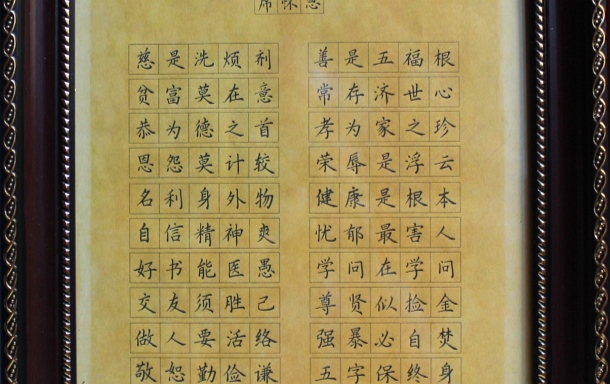 慈是洗烦剂 善是五福根
贫富莫在意 常存济世心
恭为德之首 孝为家之珍
恩怨莫计较 荣辱是浮云
名利身外物 健康是根本
自信精神爽 忧郁最害人
好书能医愚 学问在学问
交友须胜己 尊贤似捡金
做人要活络 强暴必自焚
敬恕勤俭谦 五字保终身